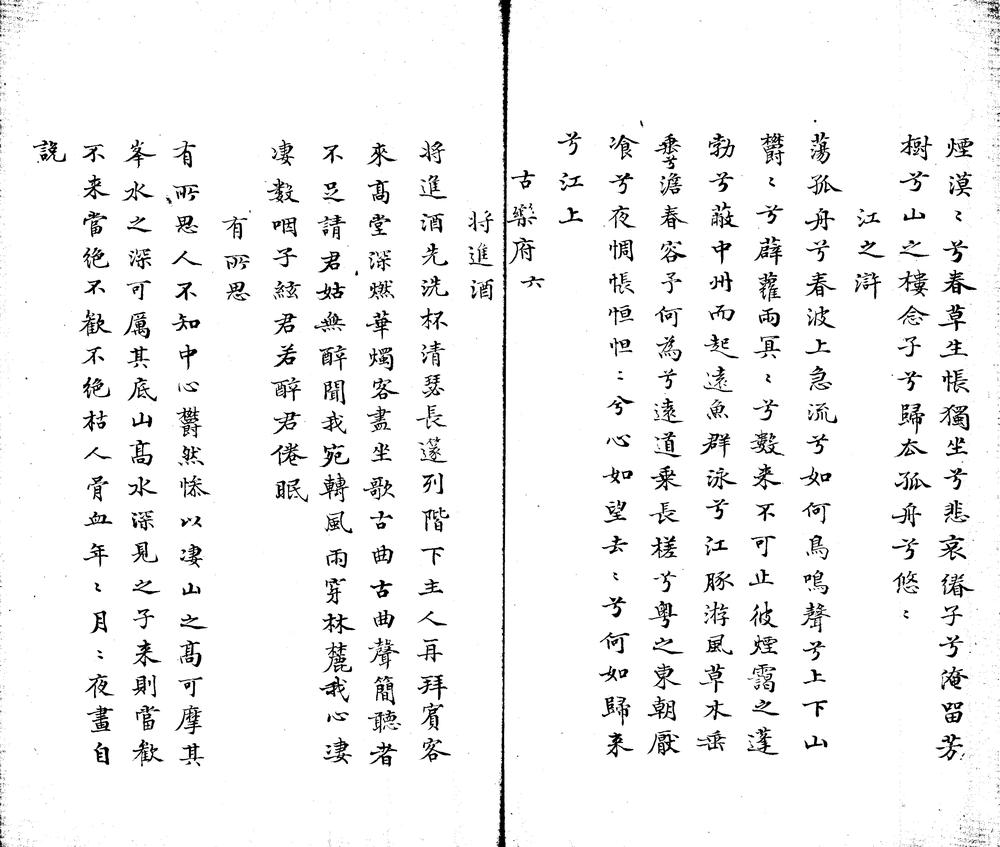 煙漠〻兮春草生悵獨坐兮悲哀緒子兮淹留芳
樹兮山之樓念子兮歸厺孤舟兮悠〻
江之滸
蕩孤舟兮春波上急流兮如何鳥鳴聲兮上下山
欝〻兮薜蘿雨冥〻兮數来不可止彼煙靄之蓬
勃兮蔽中州而起遠魚群泳兮江豚游風草木垂
垂兮澹春容予何為兮遠道乗長槎兮粤之東朝厭
飡兮夜惆悵怛怛〻兮心如望去〻兮何如歸来
兮江上
古樂府六
将進酒
将進酒先洗杯清瑟長篴列階下主人再拜賓客
來高堂深燃華燭客盡坐歌古曲古曲聲簡聽者
不足請君姑無醉聞我宛轉風雨穿林麓我心凄
凄數咽子絃君若醉君倦眠
有所思
有所思人不知中心欝然惨以凄山之髙可摩其
峯水之深可厲其底山髙水深見之子来則當歡
不来當絶不歡不絶枯人骨血年〻月〻夜晝自
說